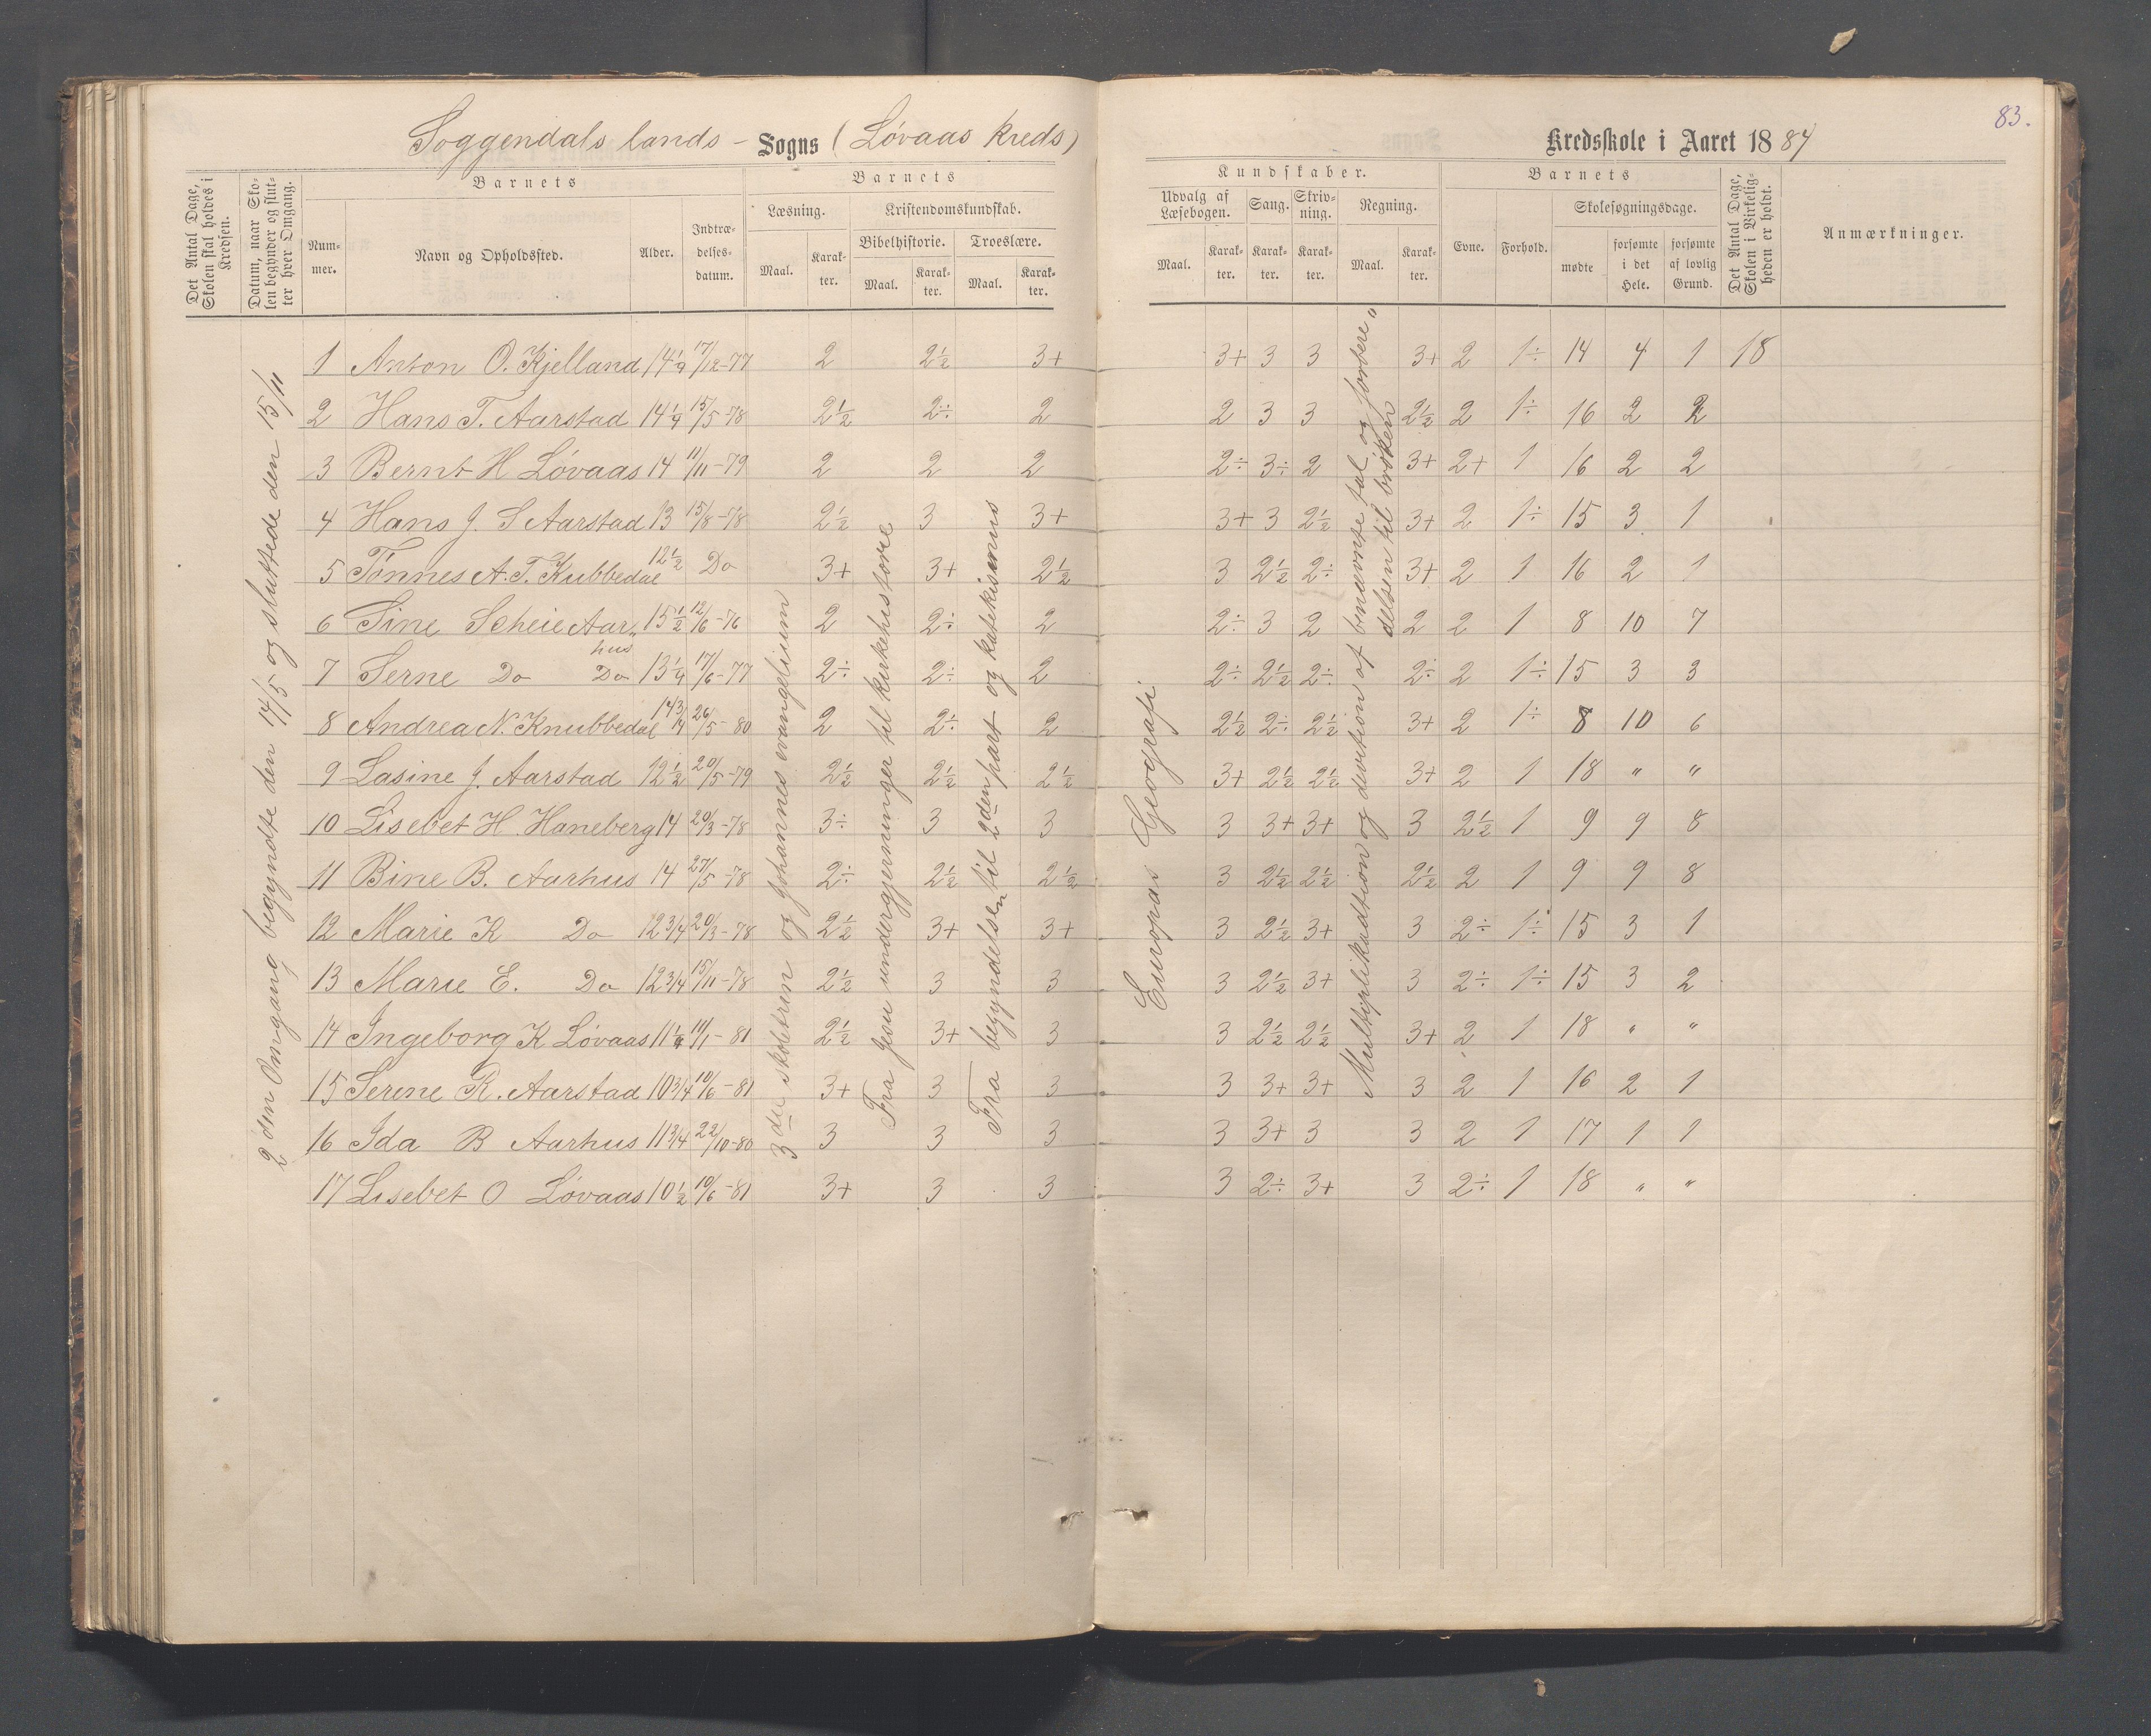 83.
Soggendals lands - Sogns (Løvaas kreds) Kredsskole i Aaret 1884
Det Antal Dage, Skolen skal holdes i Kredsen.
Datum, naar Skolen begynder og slutter hver Omgang.
Barnets
Nummer. Navn og Opholdssted. Alder. Indtrædelsesdatum.
Barnets
Læsning. Kristendomskundskab.
Bibelhistorie. Troeslære.
Maal. Karakter. Maal. Karakter. Maal. Karakter.
Kundskaber.
Udvalg af Læsebogen. Sang. Skrivning. Regning.
Maal. Karakter. Karakter. Karakter. Maal. Karakter.
Barnets
Evne. Forhold. Skolesøgningsdage.
mødte forsømte i det Hele. forsømte af lovlig Grund.
Det Antal Dage, Skolen i Virkeligheden er holdt.
Anmærkninger.
2den Omgang begyndte den 14/5 og sluttede den 15/11
3die skoletrin og Johannes evangelium
Fra Jesu undergjerninger til kirkehistorie
Fra begyndelsen til 2den part og katekismus
Europas Geografi
Multiplikadtion og devition af benævnte tal og forbere„
delsen til brøken
1 Anton O. Kjelland 14 1/4 17/12-77 2 2 1/2 3+ 3+ 3 3 3+ 2 1÷ 14 4 1 18
2 Hans T. Aarstad 14 1/4 15/5-78 2 1/2 2÷ 2 2 3 3 2 1/2 2 1÷ 16 2 2
3 Bernt H Løvaas 14 11/11-79 2 2 2 2÷ 3÷ 2 3+ 2+ 1 16 2 2
4 Hans J. S Aarstad 13 15/8-78 2 1/2 3 3+ 3+ 3 2 1/2 3+ 2 1÷ 15 3 1
5 Tønnes A. T. Kubbedal 12 1/2 Do 3+ 3+ 2 1/2 3 2 1/2 2÷ 3+ 2 1 16 2 1
6 Sine Scheie Aar„ hus 15 1/2 12/6-76 2 2÷ 2 2÷ 3 2 2 2 1 8 10 7
7 Serne Do Do 13 1/4 17/6-77 2÷ 2÷ 2 2÷ 2 1/2 2÷ 2÷ 2 1÷ 15 3 3
8 Andrea N. Knubbedal 14 3/4 26/5-80 2 2÷ 2 2 1/2 2÷ 2 1/2 3+ 2 1÷ 8 10 6
9 Lasine J. Aarstad 12 1/2 20/5-79 2 1/2 2 1/2 2 1/2 3+ 2 1/2 2 1/2 3+ 2 1 18 " "
10 Lisebet H. Haneberg 14 20/3-78 3÷ 3 3 3 3+ 3+ 3 2 1/2 1 9 9 8
11 Bine B. Aarhus 14 27/5-78 2÷ 2 1/2 2 1/2 3 2 1/2 2 1/2 2 1/2 2 1 9 9 8
12 Marie K Do 12 3/4 20/3-78 2 1/2 3+ 3+ 3 2 1/2 3+ 3 2÷ 1÷ 15 3 1
13 Marie E. Do 12 3/4 15/11-78 2 1/2 3 3 3 2 1/2 3+ 3 2÷ 1÷ 15 3 2
14 Ingeborg K Løvaas 11 1/4 11/1-81 2 1/2 3+ 3 3 2 1/2 2 1/2 3+ 2 1 18 " "
15 Serene R. Aarstad 10 3/4 10/6-81 3+ 3 3 3 3+ 3+ 3 2 1 16 2 1
16 Ida B Aarhus 11 3/4 22/10-80 3 3 3 3 3+ 3 3 2 1 17 1 1
17 Lisebet O Løvaas 10 1/2 10/6-81 3+ 3 3 3 2÷ 3+ 3 2÷ 1 18 " "